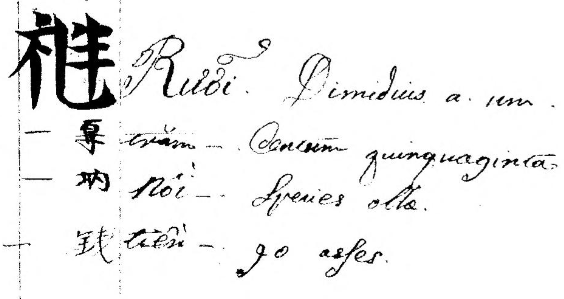 Rưỡi. Dimidius a. um.
— trăm — Centum quinquaginta.
— Nồi — Species ollæ.
— 銭 tiền — 90 asses.